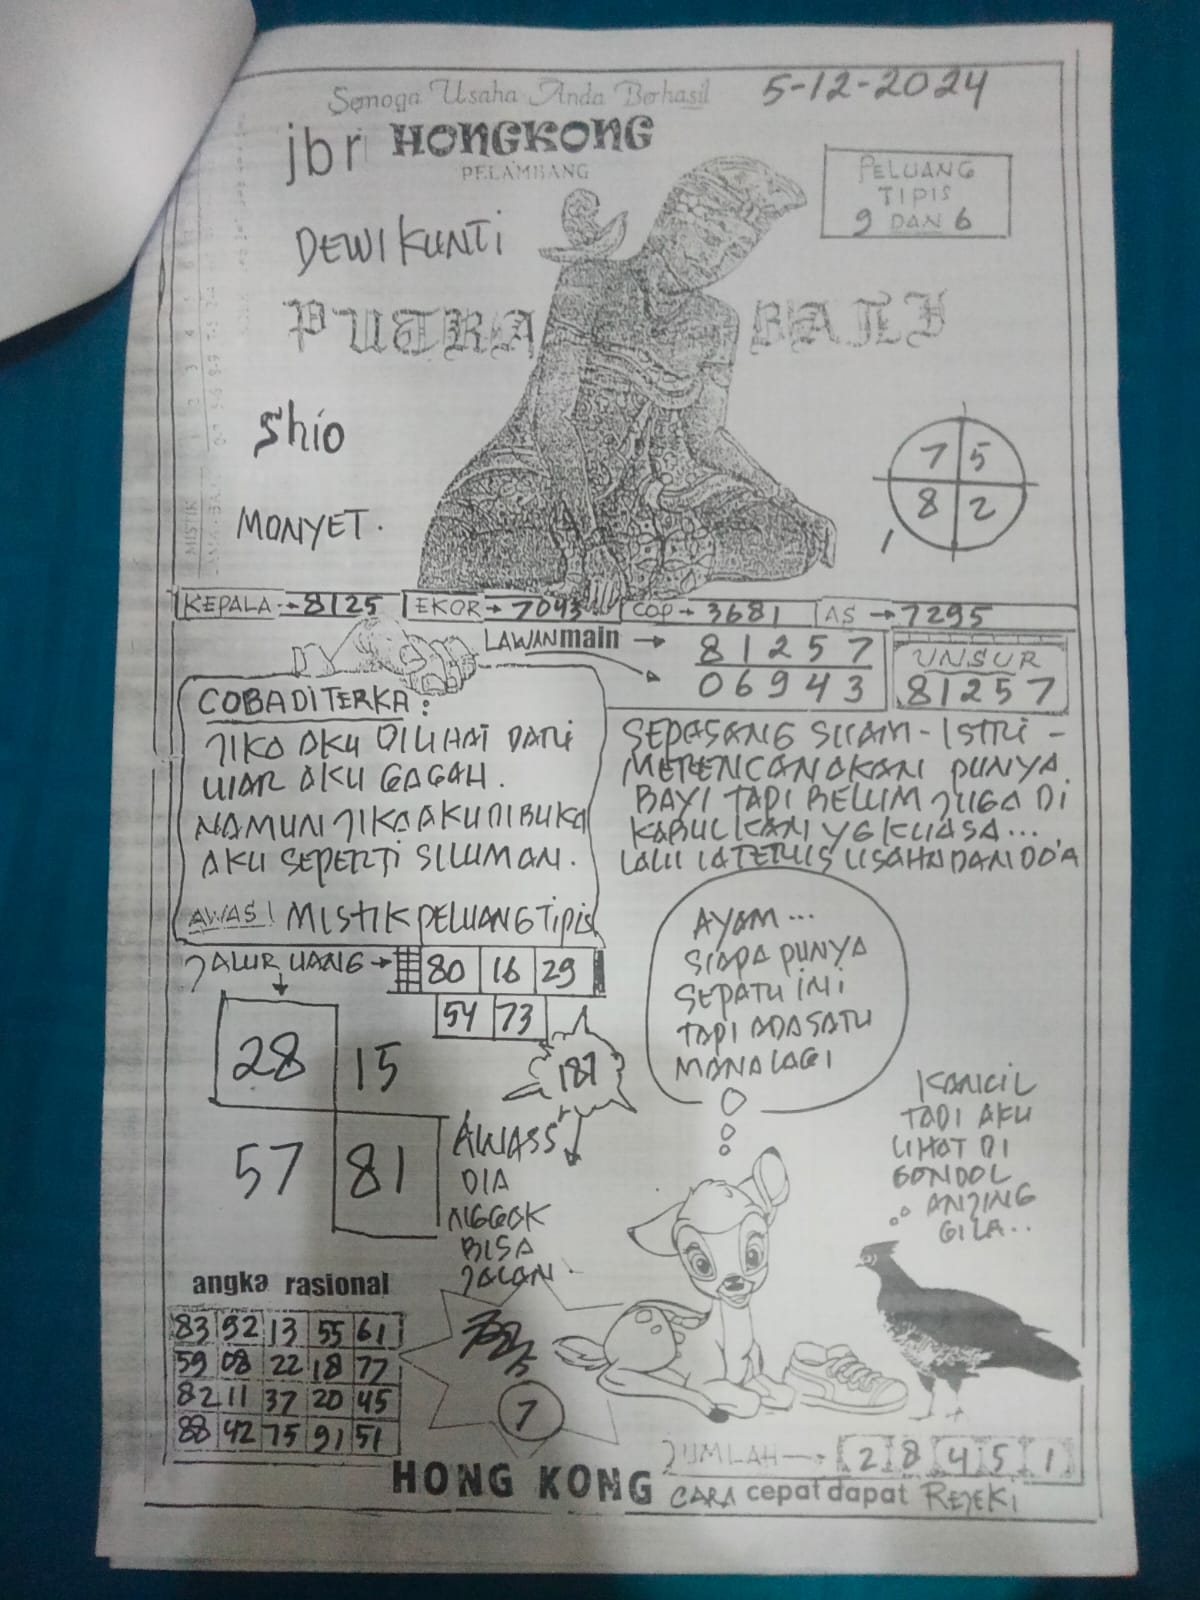 Semoga Usaha Anda Berhasil
5-12-2024
jbr HONGKONG
PELAMBANG
PELUANG
TIPIS
9 DAN 6
DEWI KUNTI
PUTRA BALI
Shio
MONYET.
7 5
8 2
MISTIK
KEPALA → 8125 EKOR → 7043 COP → 3681 AS → 7295
LAWAN main → 81257
06943
UNSUR
81257
COBA DITERKA :
JIKA AKU DILIHAT DARI
LUAR AKU GAGAH.
NAMUN JIKA AKU DIBUKA
AKU SEPERTI SILUMAN.
AWAS! MISTIK PELUANG TIPIS
SEPASANG SUAMI-ISTRI -
MERENCANAKAN PUNYA
BAYI TAPI BELUM JUGA DI
KABULKAN YG KUASA...
LALU IA TERUS USAHA DAN DO'A
JALUR UANG → 80 16 29
54 73
28 15
57 81
187
AWASS
DIA
NGGAK
BISA
JALAN.
AYAM...
SIAPA PUNYA
SEPATU INI
TAPI ADA SATU
MANA LAGI
KANCIL
TADI AKU
LIHAT DI
GONDOL
ANJING
GILA..
angka rasional
83 92 13 55 61
59 08 22 18 77
82 11 37 20 45
88 42 75 91 51
7
JUMLAH → 2 8 4 5 1
HONG KONG CARA cepat dapat REJEKI